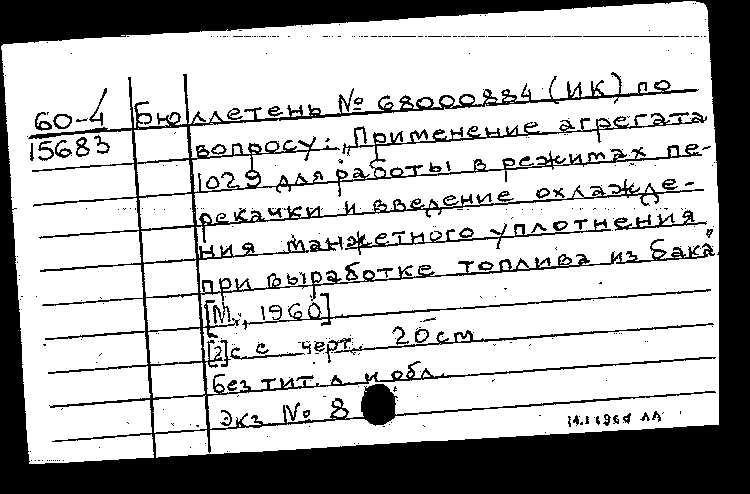 60-4 Бюллетень № 68000884 (ИК) по
15683 вопросу: „Применение агрегата
1029 для работы в режимах пе-
рекачки и введение охлажде-
ния манжетного уплотнения
при выработке топлива из бака"
[М., 1960]
[2]с с черт. 20см
без тит. л. и обл.
Экз № 8